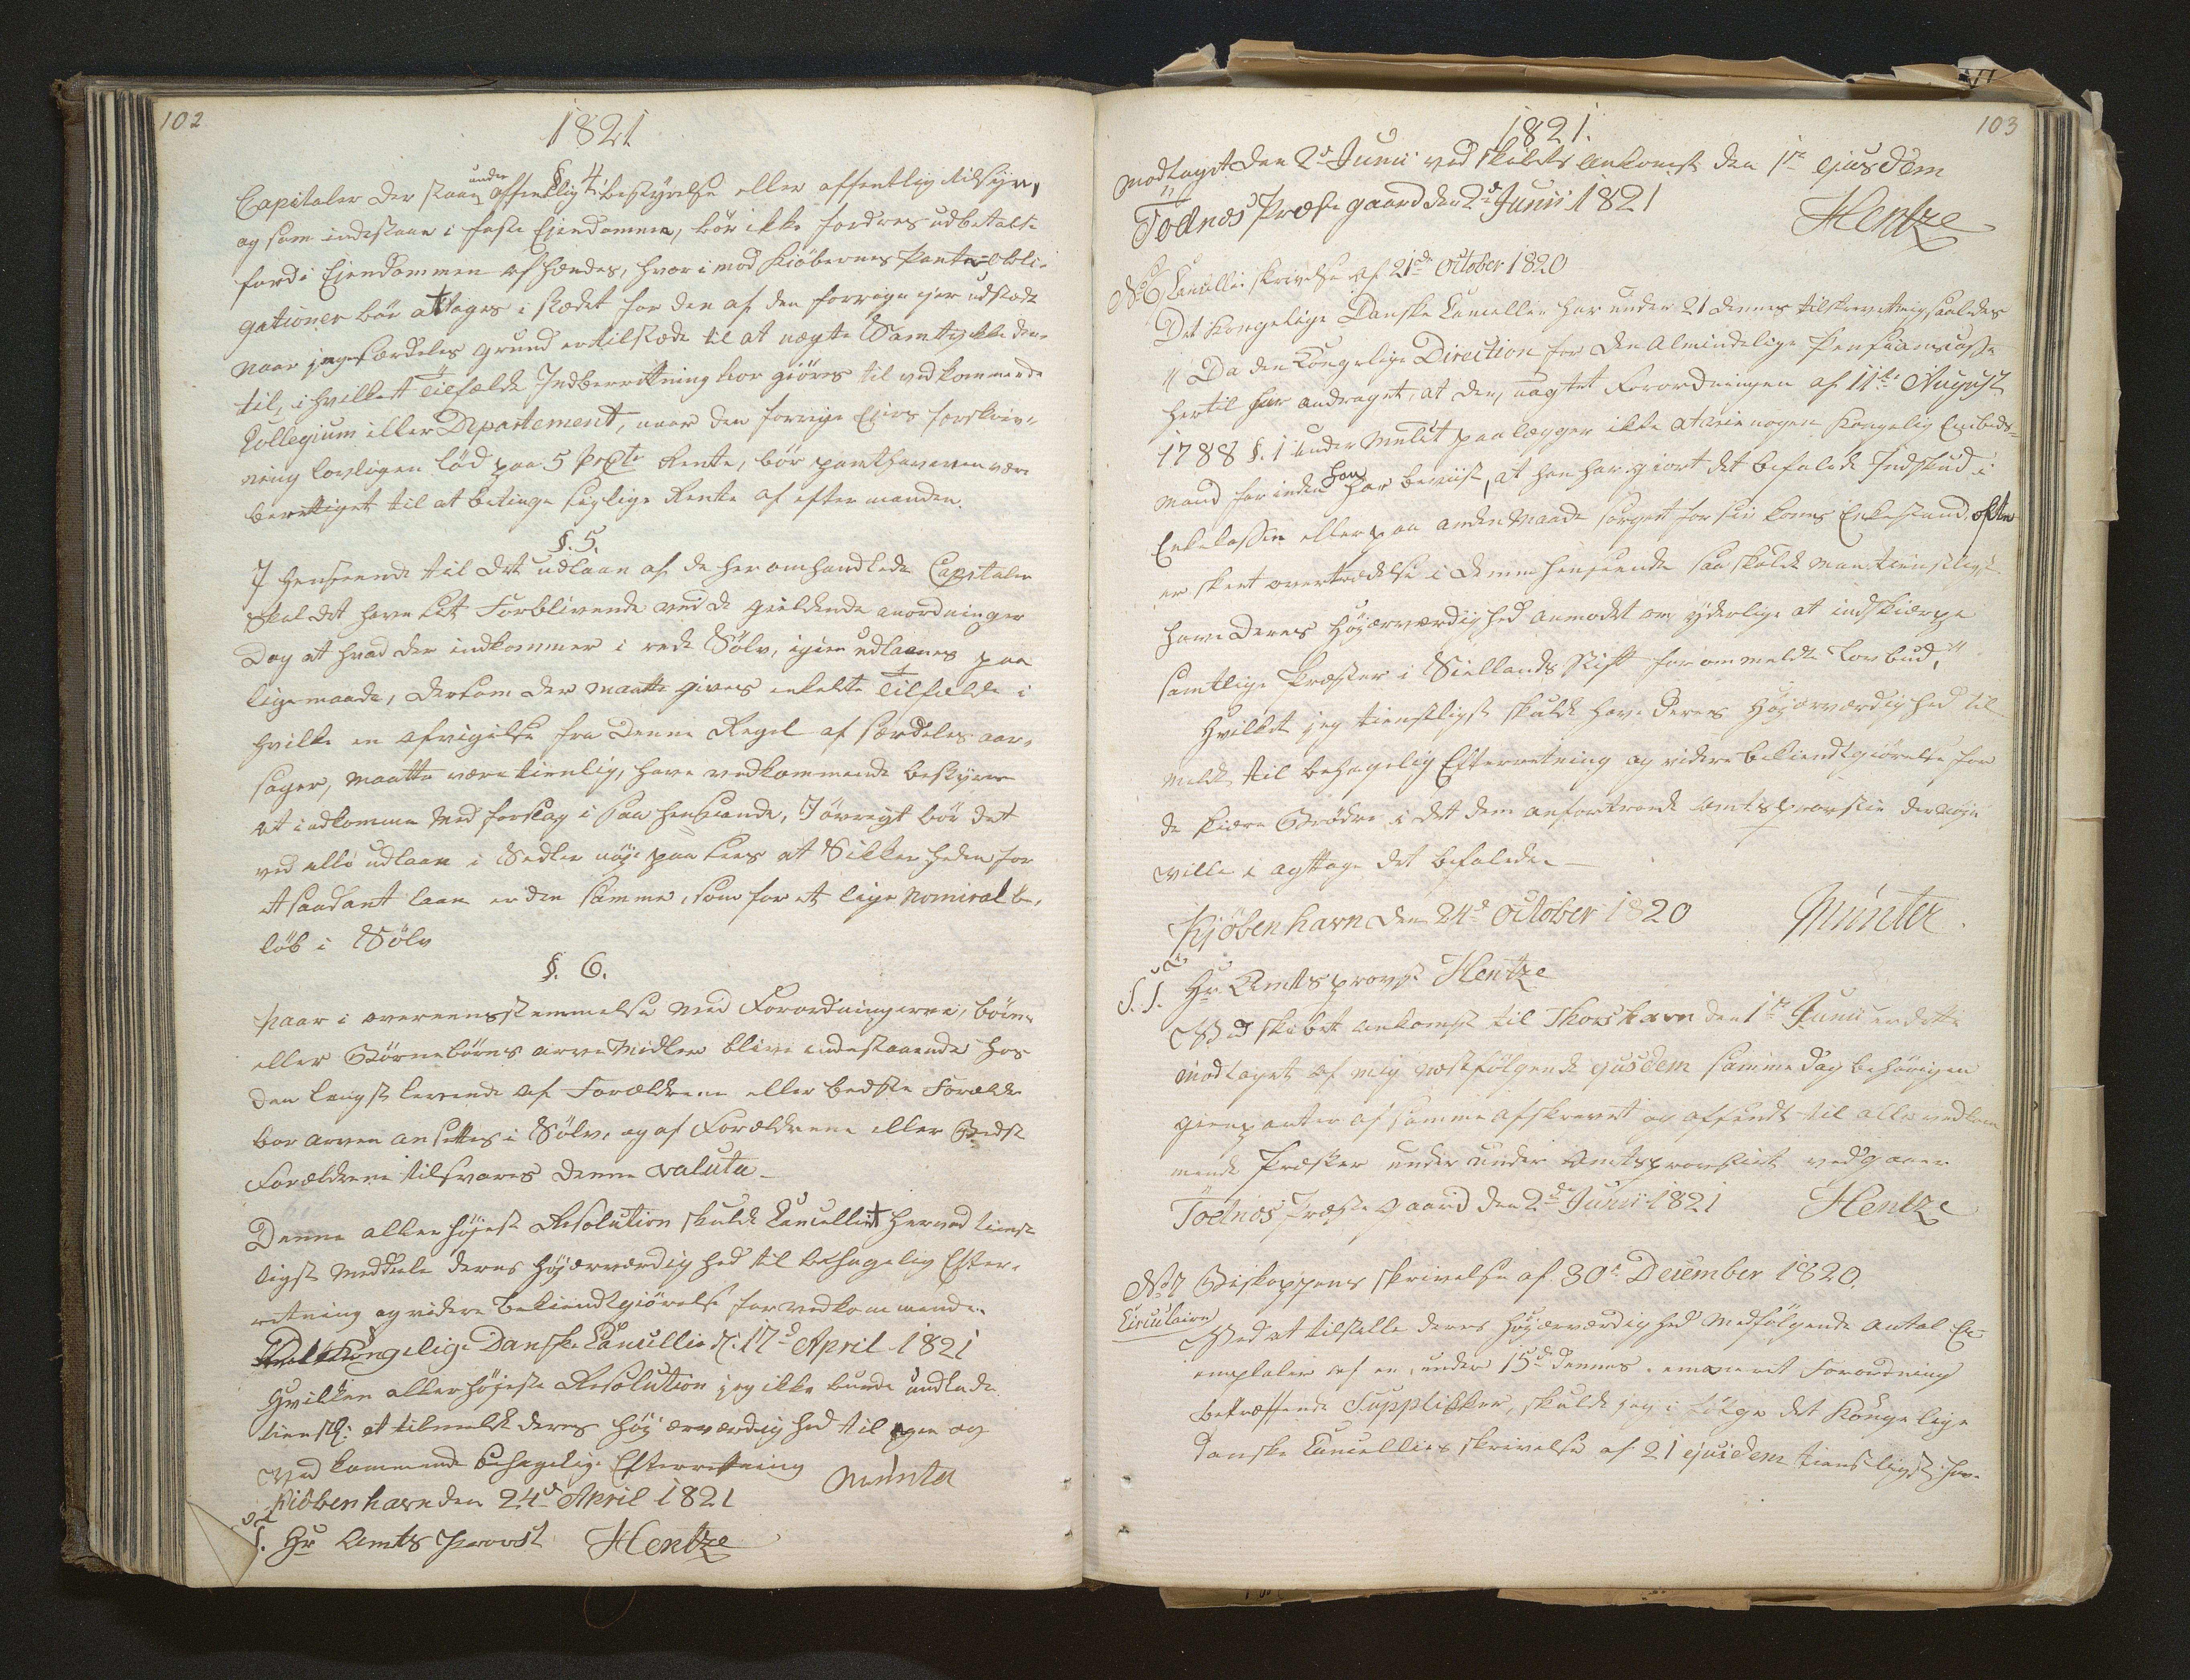 102
1821
§ 4
Capitaler der staae under offentlig bestyrelse eller offentlig tilsyn,
og som indestaae i faste Ejendomme, bör ikke fordres udbetalte
fordi Ejendommen afhændes, hvor imod Kiöbernes Pante-obli-
gationer bör attages i stædet for den af den forrige ejer udstædte
naar ingen særdeles grund er tilstæde til at nægte Samtykke der-
til, i hvilket Tilfælde Indberettning bör giöres til vedkommende
Collegium eller Departement, naar den forrige Ejers forskriv-
ning lovligen löd paa 5 prCto Rente, bör panthaveren være
berettiget til at betinge sig lige Rente af eftermanden.
§. 5.
I henseende til det udlaan af de her omhandlede Capitaler
skal det have sit Forblivende ved de gieldende anordninger
Dog at hvad der indkommer i rede Sölv, igien udlaanes paa
lige maade, dersom der maatte gives enkelte Tilfælde i
hvilke en afvigelse fra denne Regel af særdeles aar-
sager, maatte være tienlig, have vedkommende bestyrere
at indkomme med forslag i saa henseende, I övrigt bör det
ved alle udlaan i Sedler nöje paa sees at Sikkerheden for
et saadant laan er den samme, som for et lige nominal be-
löb i Sölv
§. 6.
Naar i overeensstemmelse med Forordningerne, börns
eller Börnebörns arve Midler blive indestaaende hos
den længst levende af Forældrene eller bedste Forældre
bör arven ansettes i Sölv, og af Forældrene eller Bedste
Forældrene tilsvares denne valuta_
Denne allerhöjeste Resolution skulde Cancelliet herved tienst
ligst meddeele deres Höjærværdighed til behagelig Efter-
retning og videre bekiendtgiörelse for vedkommende.
Det Kongelige Danske Cancellie d: 17d April 1821
Hvilken allerhöjeste Resolution jeg ikke kunde undlade
tienstl: at tilmelde deres Höj ærværdighed til egen og
Vedkommende behagelige Efterretning
Kiöbenhavn den 24d April 1821 Münter
S. T. Hr Amts Provst Hentze
103
1821.
modtaget den 2d Junii ved skibets ankomst den 1ste ejusdem
Todnæs Præste gaard den 2d Junii 1821
Hentze
No 6, Cancellie skrivelse af 21de October 1820
Det Kongelige Danske Cancellie har under 21 dennes tilskrevet mig saaledes
"Da den Kongelige Direction for den Almindelige Pensionscasse
hertil har andraget, at der, uagtet Forordningen af 11te August
1788 §. 1 under Mulct paalægger ikke at vie nogen Kongelig Embeds-
mand for inden han har beviist, at han har giort det befalede Indskud i
Enkekassen eller paa anden Maade sørget for sin kones Enkestand, ofte
er skeet overtrædelse i denne henseende saa skulde man tienstligst
have Deres Höjærværdighed anmodet om yderlige at indskiærpe
samtlige Præster i Siellands Stift for ommeldte Lovbud,"
Hvilket jeg tienstligst skulde have Deres Höjærværdighed til
meldt til behagelig Efterretning og videre bekiendtgiörelse for
de kiære Brödre i det dem anfortroede Amtsprovstie der nöje
ville i agttage det befalede.—
Kjöbenhavn den 24d October 1820 Münter.
S. T. Hr. Amtsprovst Hentze
Med skibet ankomst til Thorshavn den 1ste Junii er dette
modtaget af mig næstfölgende ejusdem samme dag behörigen
gienparter af samme afskrevet og afsendt til alle vedkom
mende Præster under under Amtsprovstiet vedgaaer
Todnæs Præste gaard den 2de Junii 1821 Hentze
No 7 Biskoppens skrivelse af 30te December 1820.
Circulaire
Ved at tilstelle deres Höjærværdighed medfölgende antal Ex-
emplaler af en, under 15d dennes, emaneret Forordning
betræffende Supplikker, skulde jeg i fölge det Kongelige
danske Cancellies skrivelse af 21 ejusdem tienstligst have